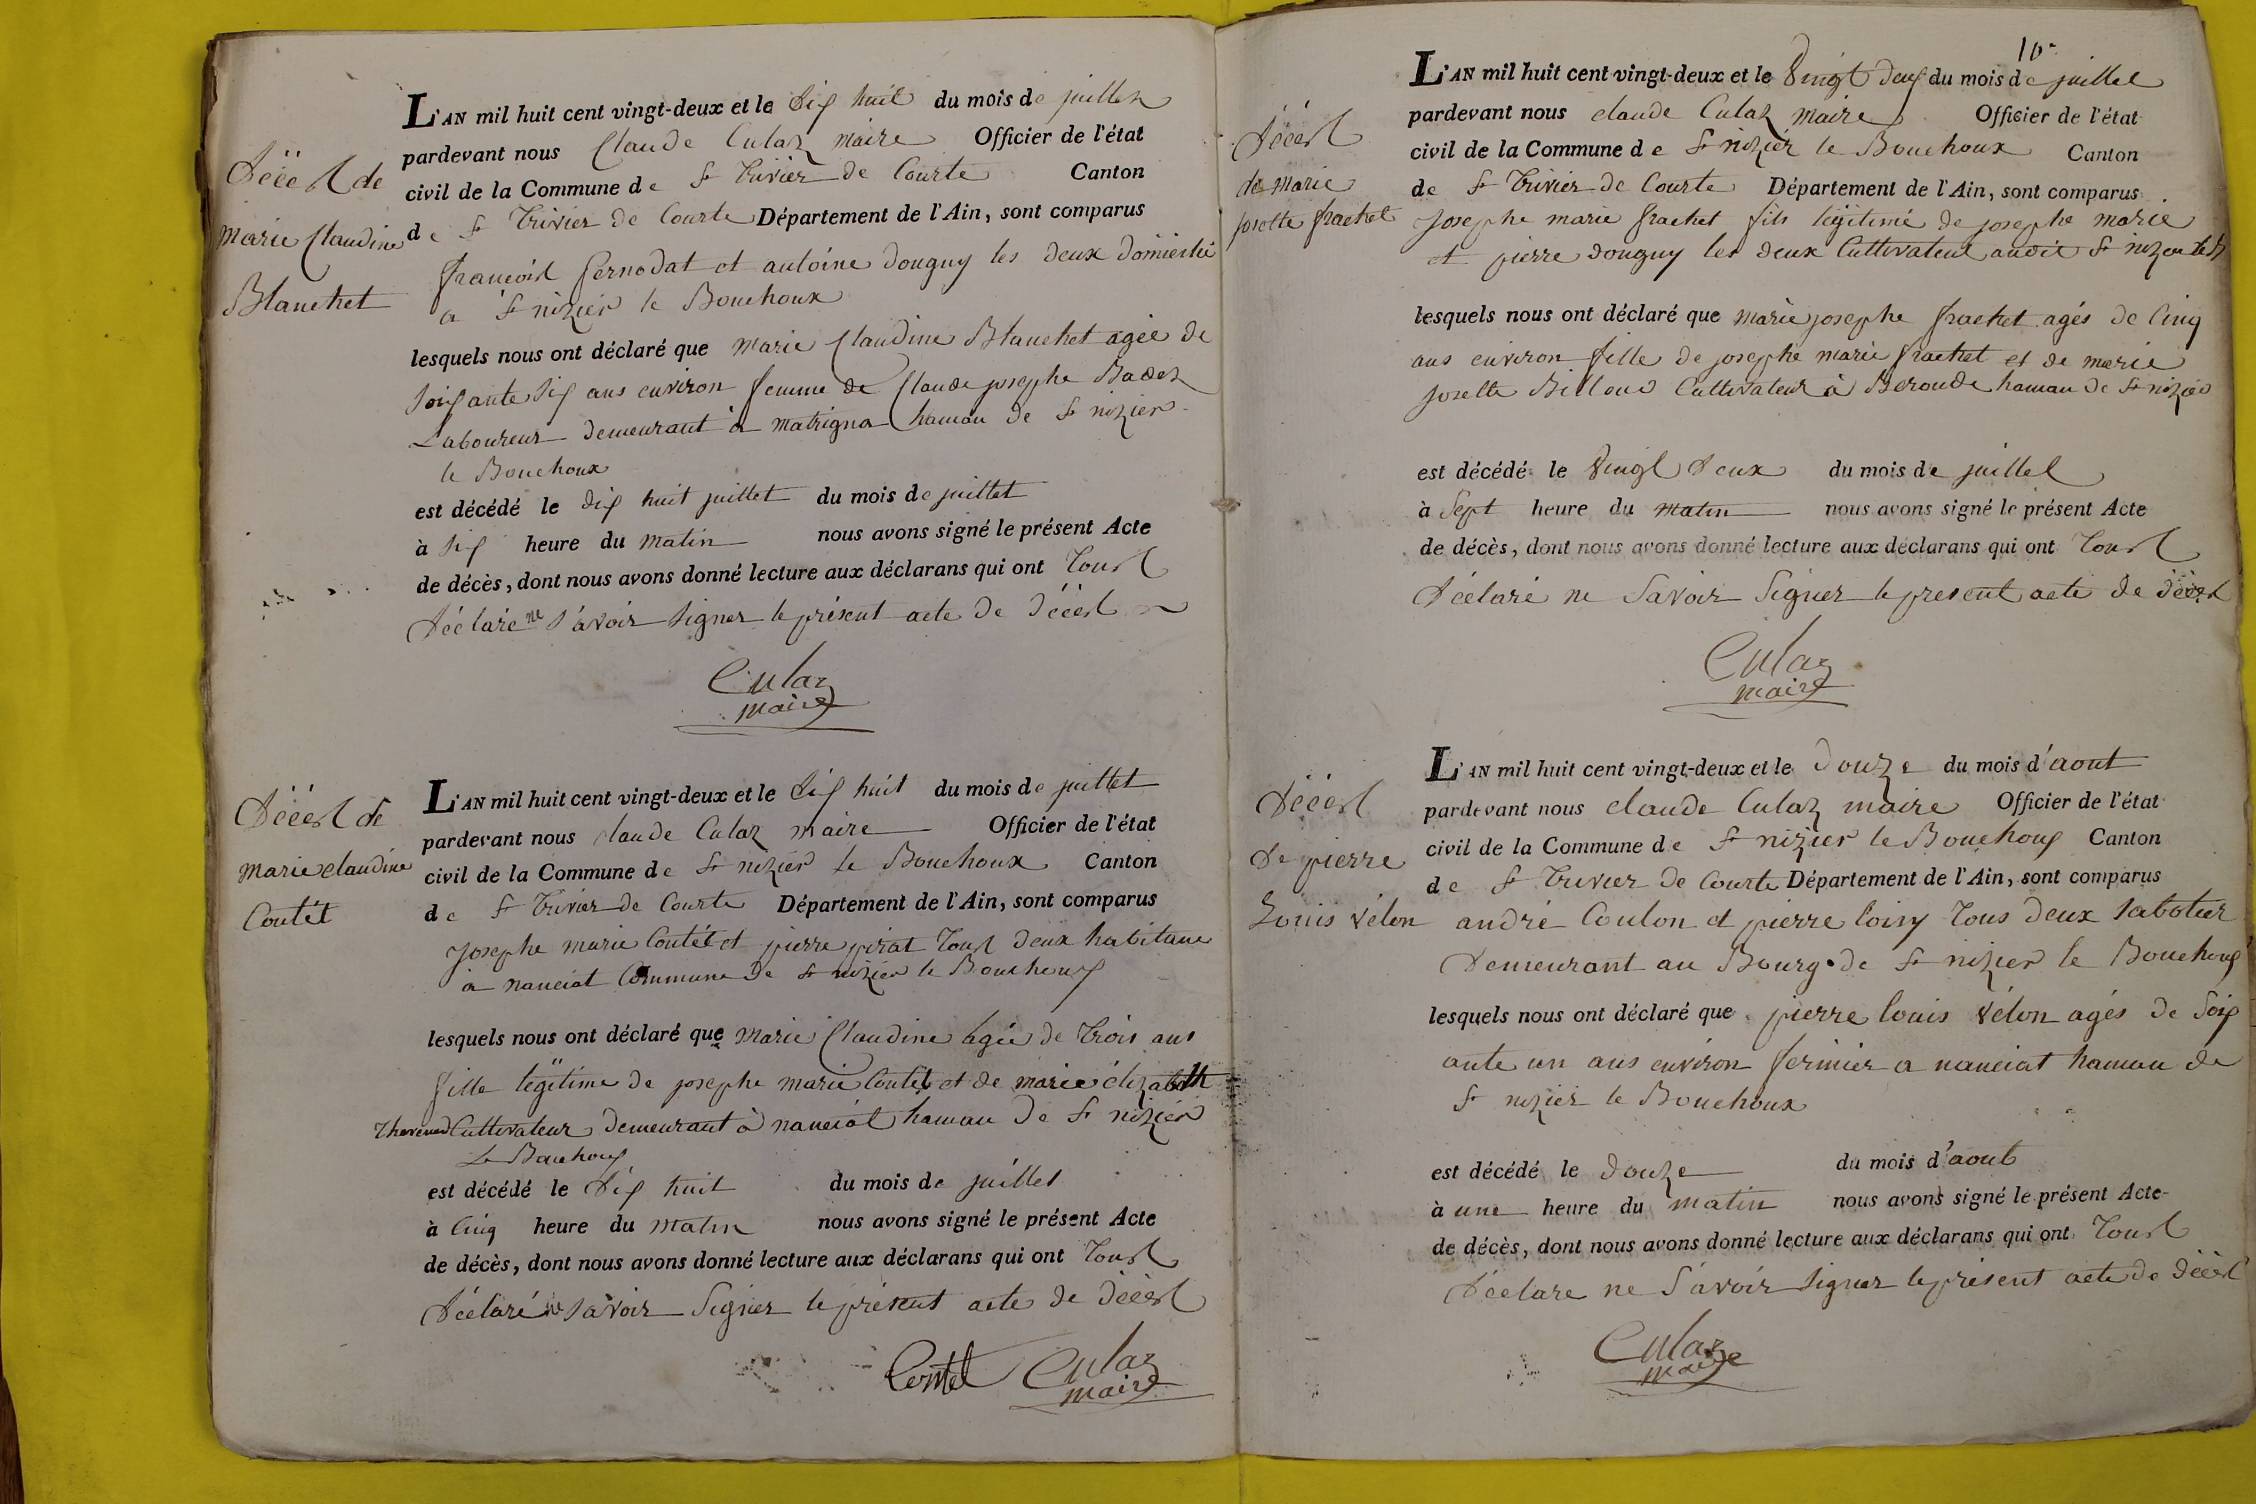 Décés de
Marie Claudine
Blanchet
L'AN mil huit cent vingt-deux et le dix huit du mois de juillet
pardevant nous Claude Culaz maire Officier de l'état
civil de la Commune de St Trivier de Courte Canton
de St Trivier de Courte Département de l'Ain, sont comparus
francois fernodat et antoine dougny les deux domiestic
a St nizier le Bouchoux
lesquels nous ont déclaré que marie Claudine Blanchet agée de
soixante six ans environ femme de Claude josephe Badez
Laboureur demeurant à matrigna hamau de St nizier
le Bouchoux
est décédé le dix huit juillet du mois de juillet
à six heure du matin nous avons signé le présent Acte
de décès, dont nous avons donné lecture aux déclarans qui ont Tous
déclaré ne sávoir signer le présent acte de décés
Culaz
maire
Décés de
marie claudine
Coutét
L'AN mil huit cent vingt-deux et le dix huit du mois de juillet
pardevant nous claude Culaz maire Officier de l'état
civil de la Commune de St nizier le Bouchoux Canton
de St Trivier de Courte Département de l'Ain, sont comparus
josephe marie Coutét et pierre pirat Tous deux habitans
a nanciat Commune de St nizier le Bouchoux
lesquels nous ont déclaré que marie Claudine agée de Trois ans
fille legitime de josephe marie Coutét et de marie élizabeth
Thevenard Cultivateur demeurant à nanciat hamau de St nizier
Le Bouchoux
est décédé le dix huit du mois de juillet
à Cinq heure du matin nous avons signé le présent Acte
de décès, dont nous avons donné lecture aux déclarans qui ont Tous
déclaré ne savoir signer le présent acte de décés
Contet Culaz
maire
10
Décés
de Marie
josette frachet
L'AN mil huit cent vingt-deux et le vingt deux du mois de juillet
pardevant nous claude Culaz maire Officier de l'état
civil de la Commune de St nizier le Bouchoux Canton
de St Trivier de Courte Département de l'Ain, sont comparus
josephe marie frachet fils légitime de josephe marie
et pierre dougny les deux Cultivateur audit St nizier
lesquels nous ont déclaré que marie josephe frachet agés de Cinq
ans environ fille de josephe marie frachet et de marie
josette Billoud Cultivateur à Beroude hamau de St nizier
est décédé le vingt deux du mois de juillet
à Sept heure du matin nous avons signé le présent Acte
de décès, dont nous avons donné lecture aux déclarans qui ont Tous
déclaré ne Savoir Signer le present acte de décés
Culaz
maire
Décés
de pierre
Louis vélon
L'AN mil huit cent vingt-deux et le douze du mois d'aout
pardevant nous claude Culaz maire Officier de l'état
civil de la Commune de St nizier le Bouchoux Canton
de St Trivier de Courte Département de l'Ain, sont comparus
andré Coulon et pierre loisy Tous deux sabotier
demeurant au Bourg de St nizier le Bouchoux
lesquels nous ont déclaré que pierre louis vélon agés de Soix
ante un ans environ fermier a nanciat hamau de
St nizier le Bouchoux
est décédé le douze du mois d'aout
à une heure du matin nous avons signé le présent Acte
de décès, dont nous avons donné lecture aux déclarans qui ont Tous
déclare ne Sávoir signer le présent acte de décés
Culaz
maire